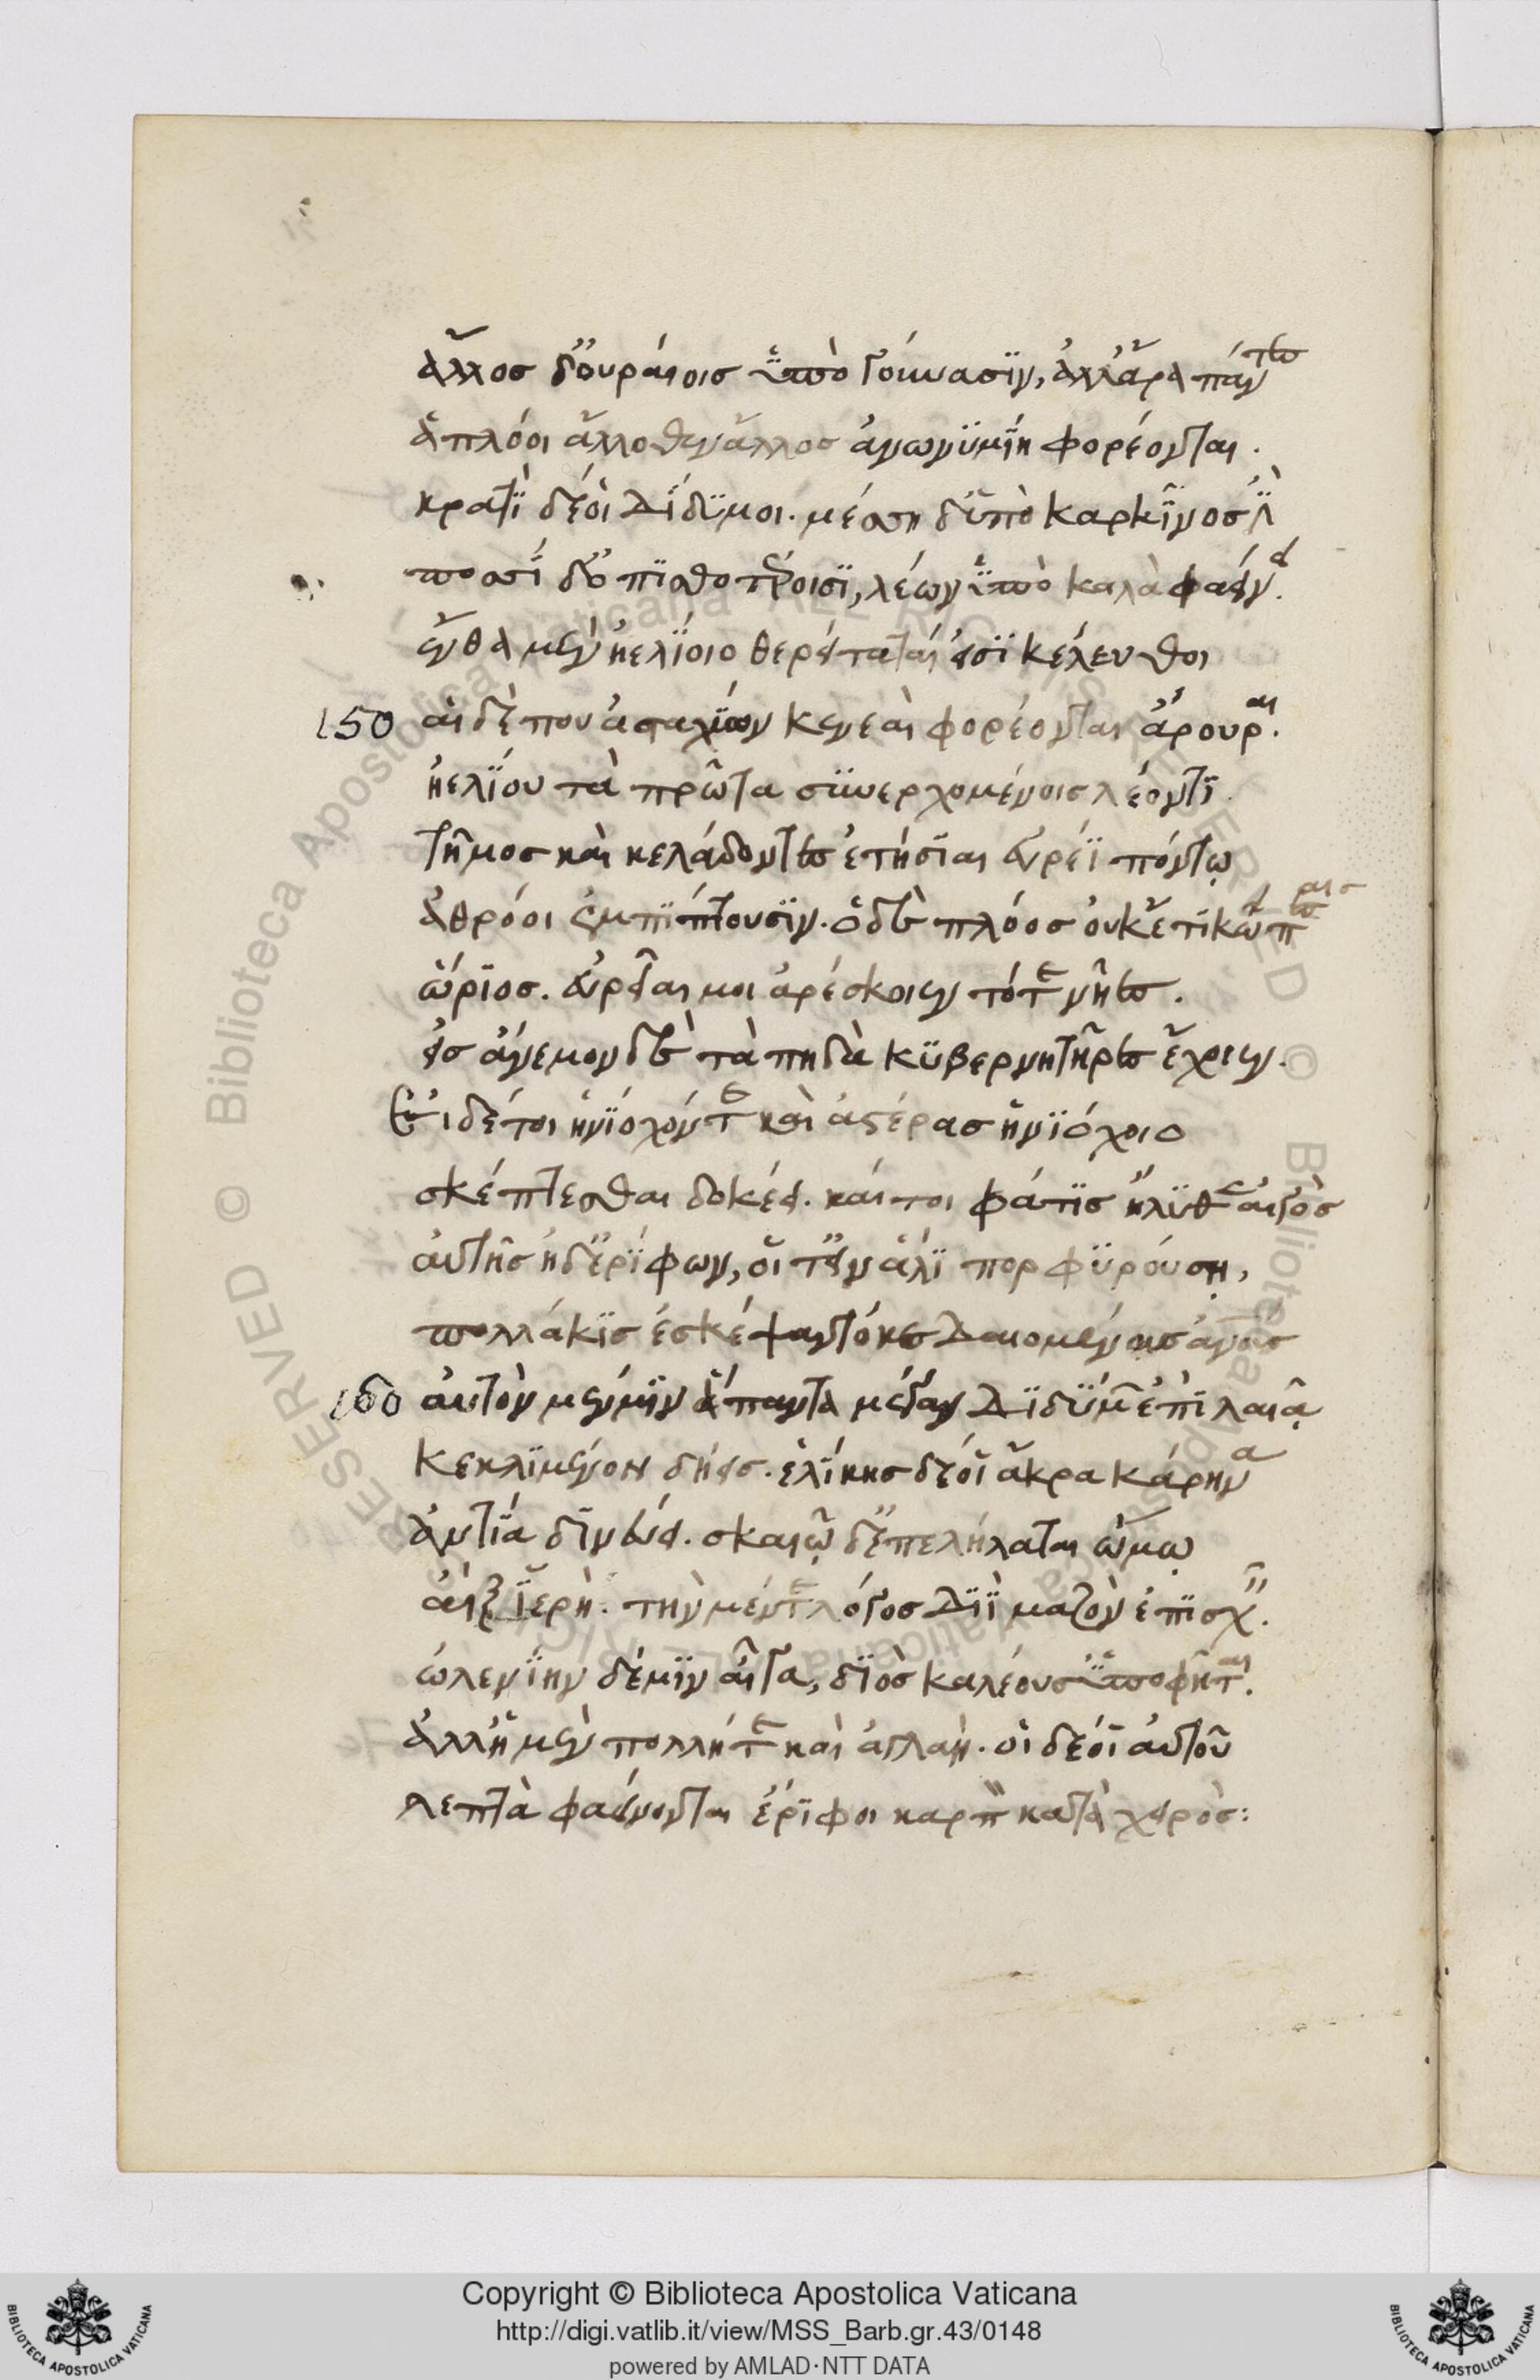 ἄλλος δ' οὐραίοις ὑπὸ γούνασιν, ἀλλ' ἄρα πάντες
ἁπλόοι ἄλλοθεν ἄλλος ἀνωνυμίῃ φορέονται.
κρατὶ δέ οἱ Δίδυμοι. μέσσῃ δ' ὕπο καρκίνος ἐστὶ
ποσσὶ δ' ὀπισθοτέροισι, λέων ὑπὸ καλὰ φαείνει.
ἔνθα μὲν ἠελίοιο θερείταταί εἰσι κέλευθοι
150 αἱ δέ που ἀσταχύων κενεαὶ φορέονται ἄρουραι.
ἠελίου τὰ πρῶτα συνερχομένοις λέοντι
τῆμος καὶ κελάδοντες ἐτησίαι εὐρέϊ πόντῳ
ἀθρόοι ἐμπίπτουσιν. ὁ δὲ πλόος οὐκέτι κώπαις
ὥριος. εὐρεῖαί μοι ἀρέσκοιεν τότε νῆες.
εἰς ἄνεμον δὲ τὰ πηδὰ κυβερνητῆρες ἔχοιεν.
Εἰ δέ τοι ἡνίοχόν τε καὶ ἀστέρας ἡνιόχοιο
σκέπτεσθαι δοκέει. καί τοι φάτις ἤλυθεν αἰγὸς
αὐτῆς ἠδ' ἐρίφων, οἵ τ' εἰν ἁλὶ πορφυρούσῃ,
πολλάκις ἐσκέψαντο κεδαιομένους ἀνθρώπους
160 αὐτὸν μέν μιν ἅπαντα μέγαν Διδύμων ἐπὶ λαιᾷ
κεκλιμένον δήεις. ἑλίκης δέ οἱ ἄκρα κάρηνα
ἀντία δινεύει. σκαιῷ δ' ἐπελήλαται ὤμῳ
αἲξ ἱερή. τὴν μέν τε λόγος Διῒ μαζὸν ἐπισχεῖν.
ὠλενίην δέ μιν αἶγα, διὸς καλέουσ' ὑποφῆται.
ἀλλ' ἡ μὲν πολλή τε καὶ ἀγλαή. οἱ δέ οἱ αὐτοῦ
λεπτὰ φαείνονται ἔριφοι καρπὸν κατὰ χειρός:
Copyright © Biblioteca Apostolica Vaticana
http://digi.vatlib.it/view/MSS_Barb.gr.43/0148
powered by AMLAD·NTT DATA